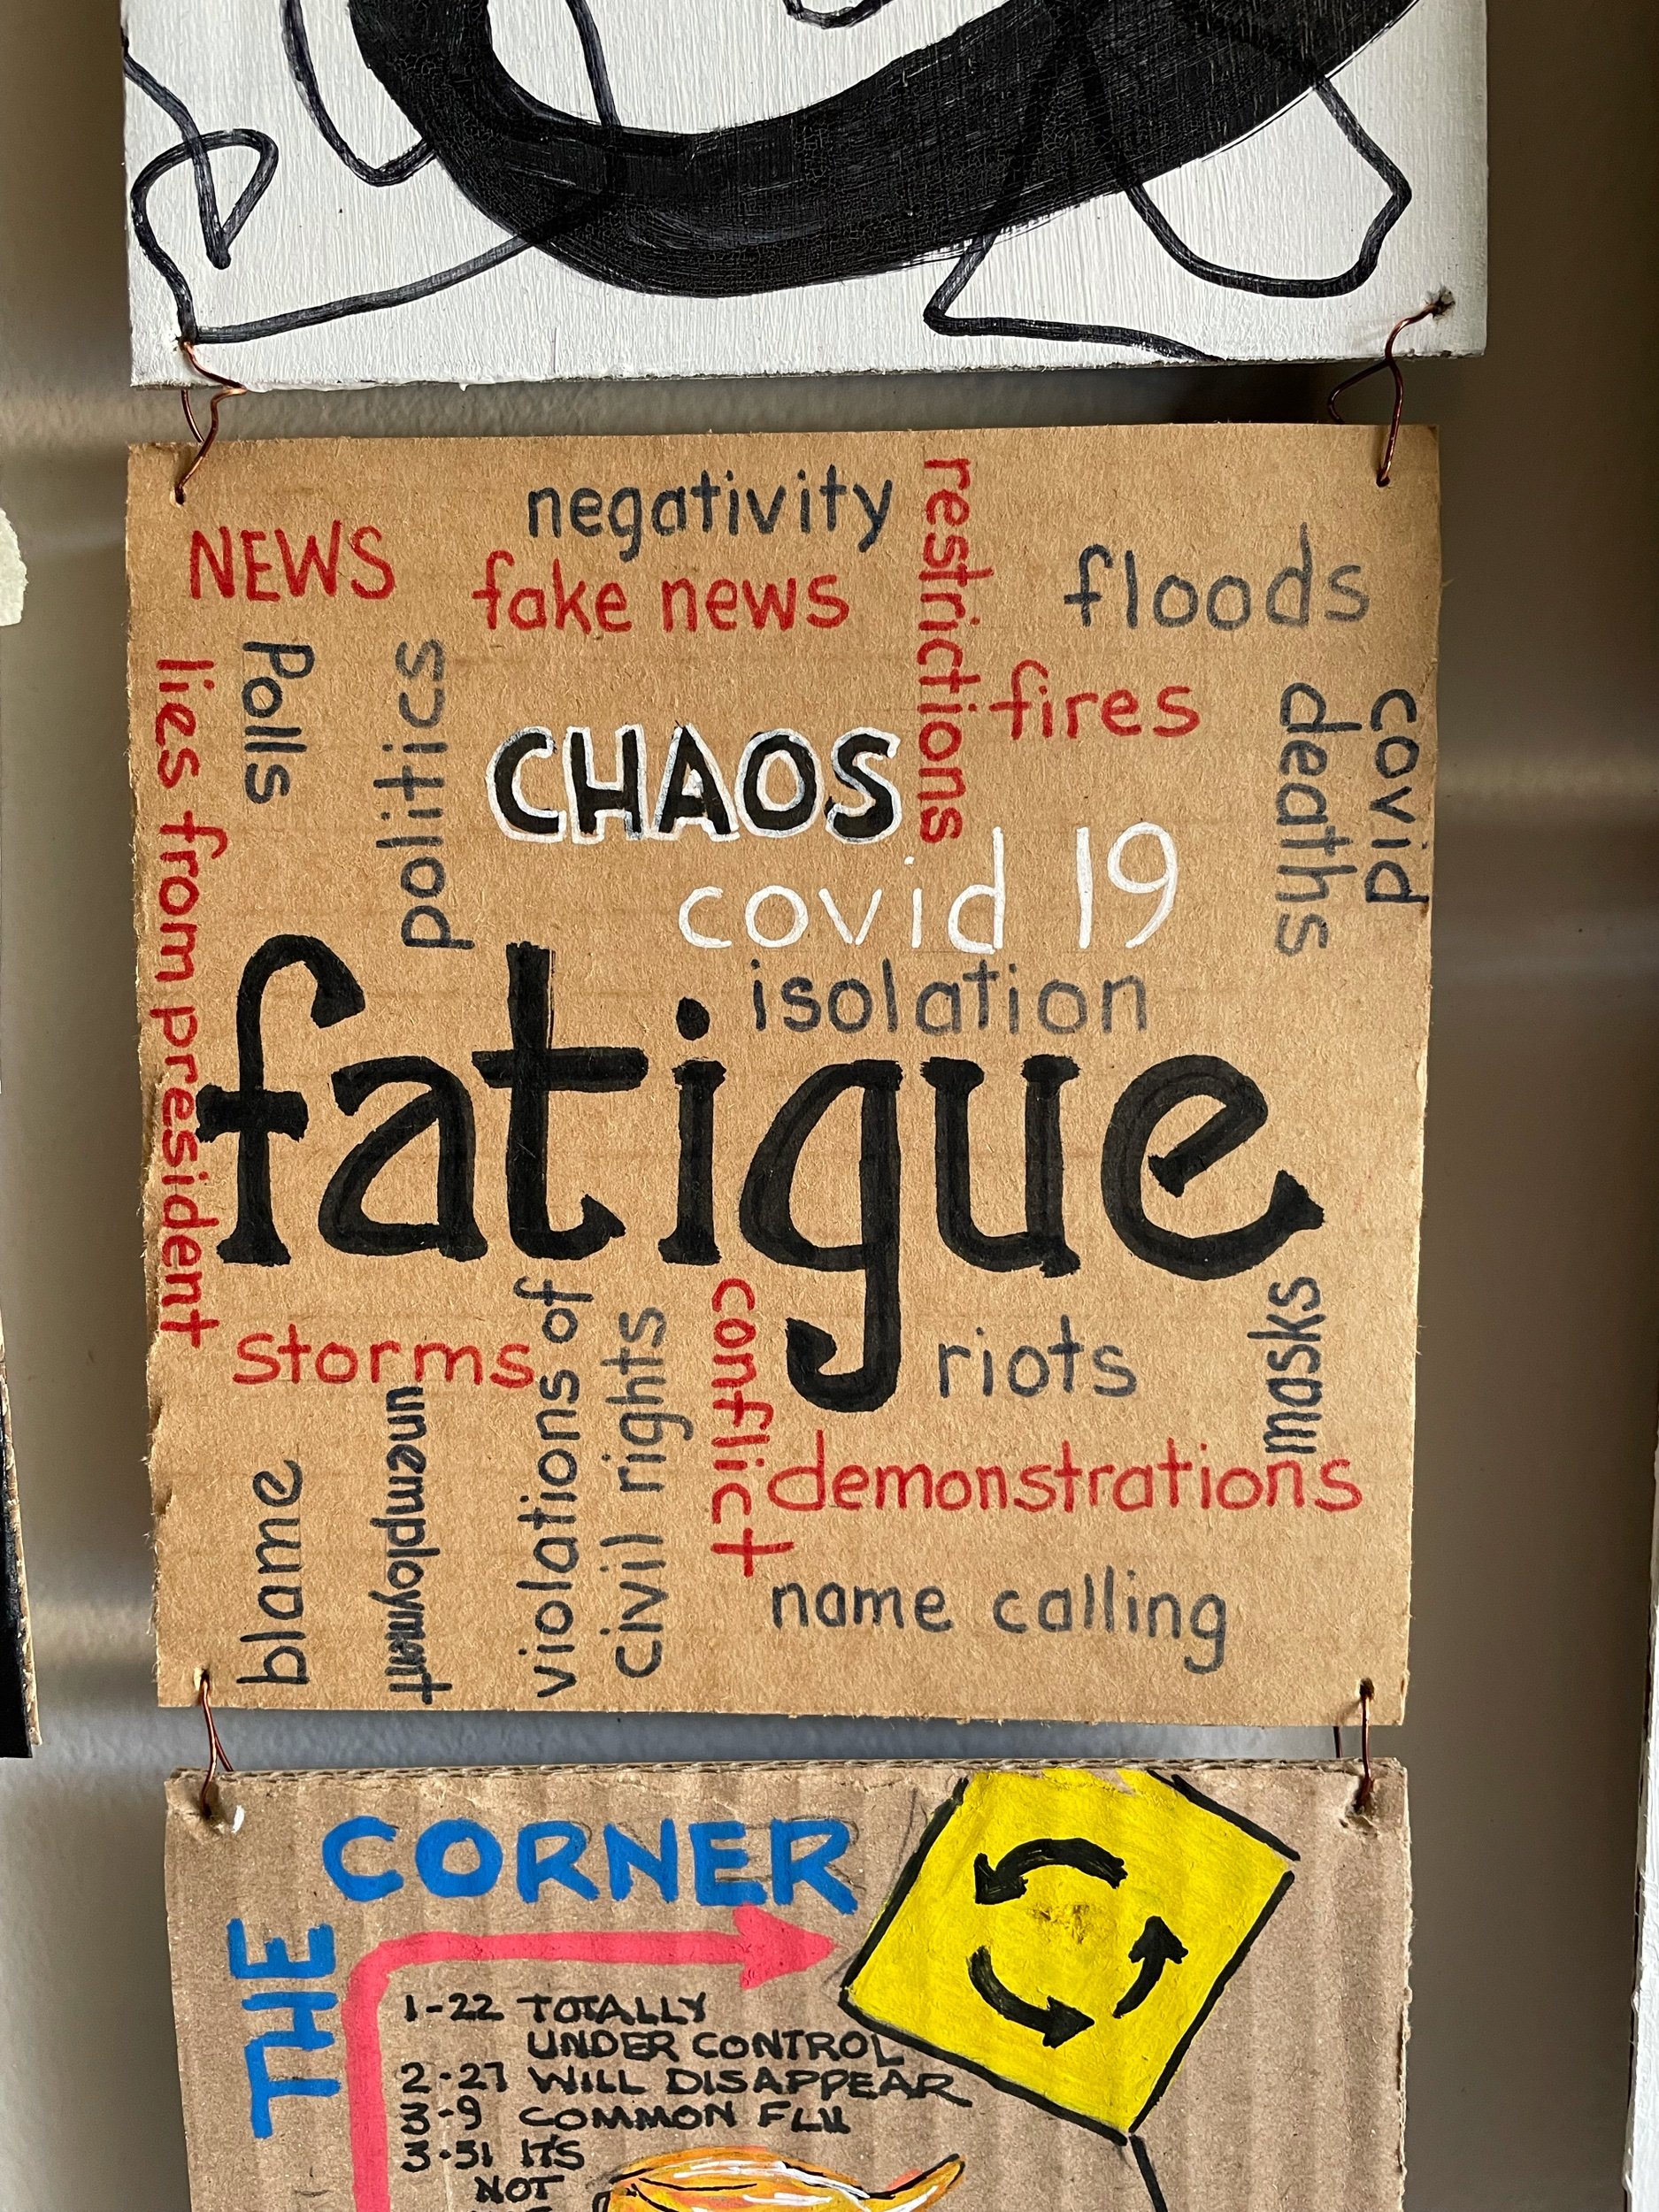 negativity
restrictions
NEWS
fake news
floods
Polls
politics
lies from president
fires
covid
deaths
CHAOS
covid 19
isolation
fatigue
storms
violations of
civil rights
conflict
riots
masks
unemployment
blame
demonstrations
name calling
THE
CORNER
1-22 TOTALLY
UNDER CONTROL
2-27 WILL DISAPPEAR
3-9 COMMON FLU
3-31 IT'S
NOT